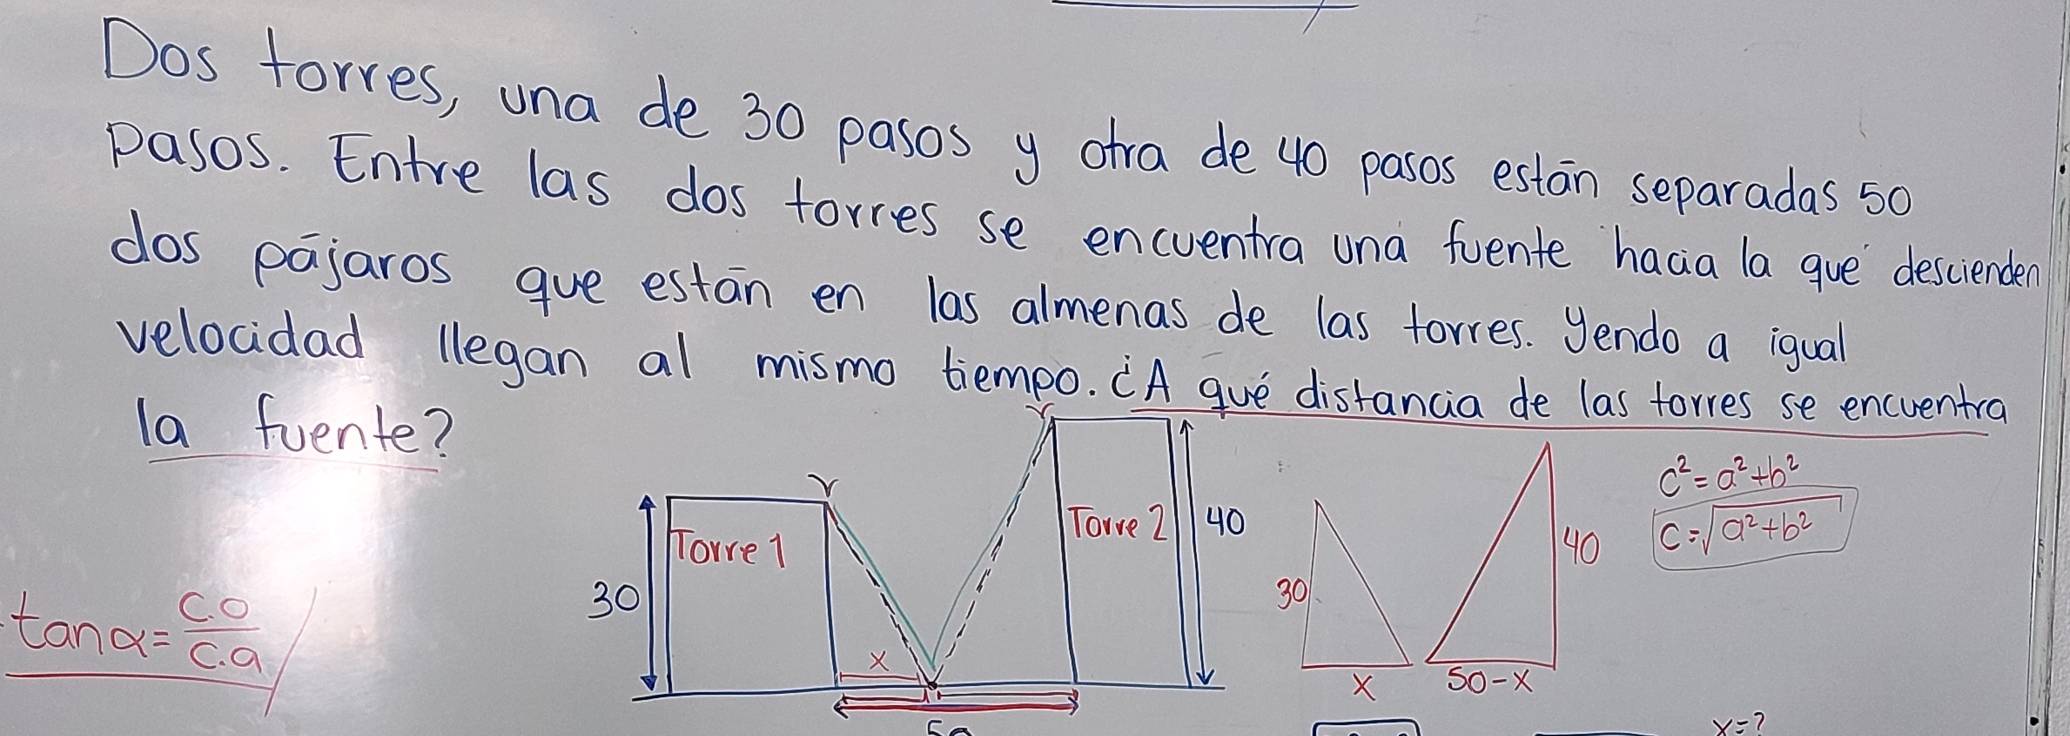 Dos torres, una de 30 pasos y otra de 40 pasos están separadas 50
pasos. Entre las dos torres se encuentra una fuente hacia la que descienden
dos pájaros que están en las almenas de las torres. Yendo a igual
velocidad llegan al mismo tiempo. ¿A qué distancia de las torres se encuentra
la fuente?
c²=a²+b²
Torre 1
Torre 2
40
40
c=√a²+b²
30
30
tanα=c.o/c.a
x
x
50-x
50
x=?